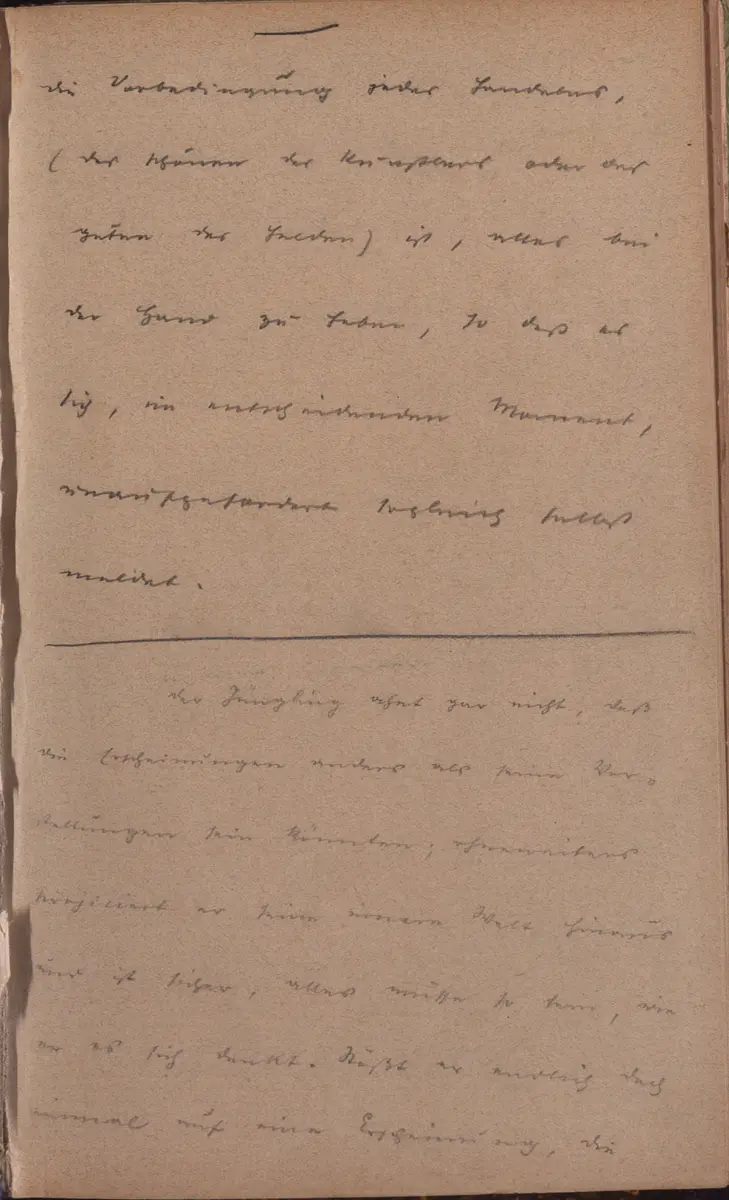 die Vorbedingung jedes Handelns,
(des schönen des Künstlers oder des
guten des Helden) ist, alles bei
der Hand zu haben, so daß es
sich, im entscheidenden Moment,
unaufgefordert sogleich selbst
meldet.
der Jüngling ahnt gar nicht, daß
die Erscheinungen anders als seine Vor-
stellungen sein könnten; ohneweiters
projiciert er seine innere Welt hinaus
und ist sicher, alles müsse so sein, wie
er es sich denkt. Stößt er endlich doch
einmal auf eine Erscheinung, die